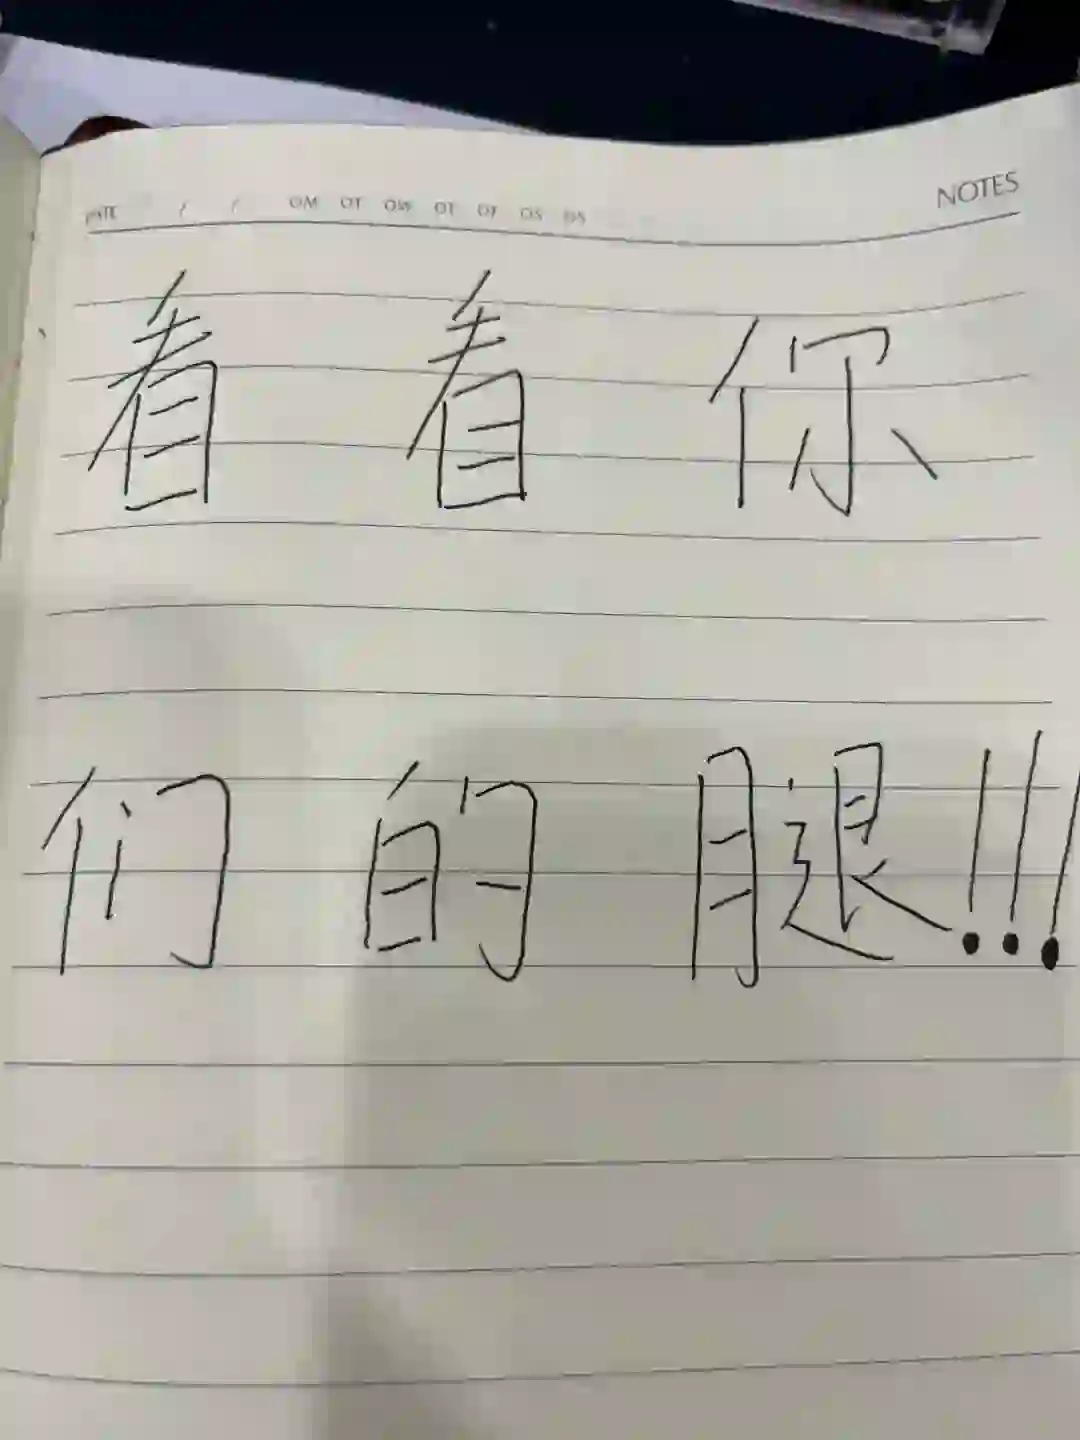 DATE / / OM OT OW OT OF OS OS NOTES
看看你
们的腿!!!